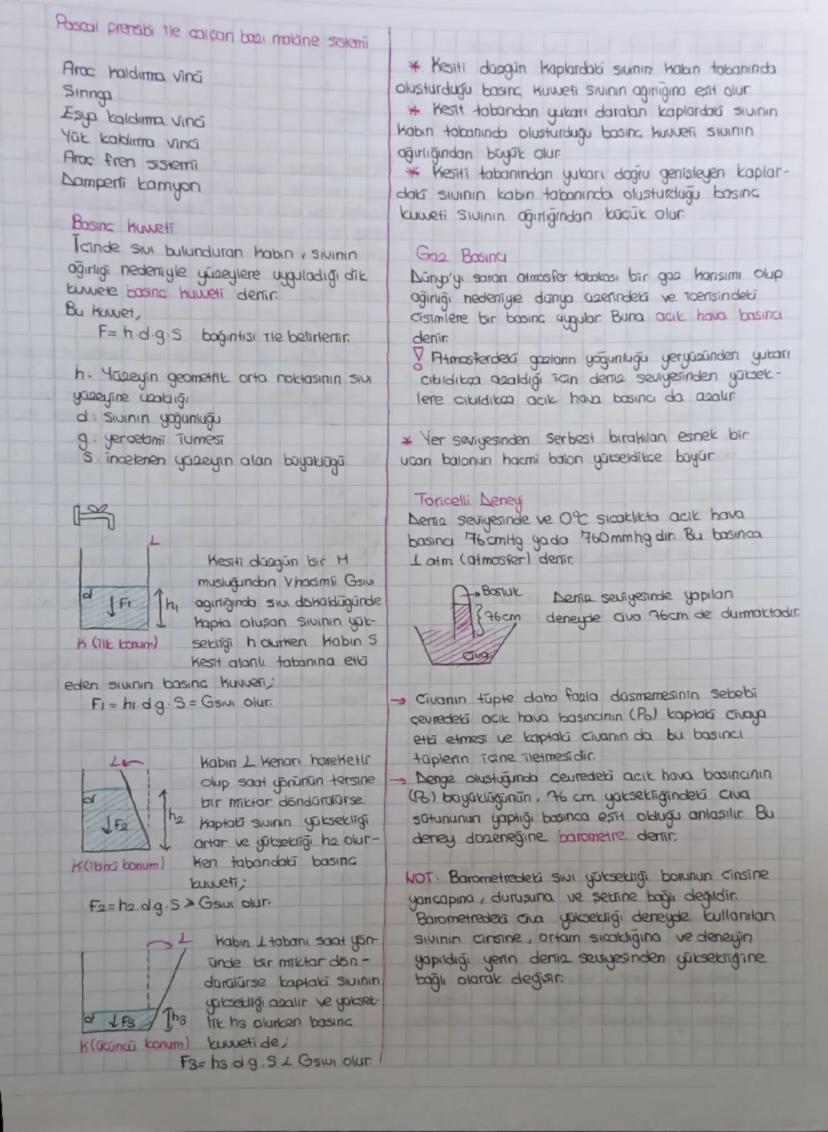 Pascal prensibi ile çalışan bazı makine sistemi
Araç kaldırma vinci
Şırınga
Eşya kaldırma vinci
Yük kaldırma vinci
Araç fren sistemi
Damperli kamyon
Basınç kuvveti
İçinde sıvı bulunduran kabın, sıvının
ağırlığı nedeniyle yüzeylere uyguladığı dik
kuvvete basınç kuvveti denir.
Bu kuvvet,
F=h.d.g.S bağıntısı ile belirlenir.
h: Yüzeyin geometrik orta noktasının sıvı
yüzeyine uzaklığı
d: Sıvının yoğunluğu
g: yerçekimi ivmesi
S: incelenen yüzeyin alan büyüklüğü
L
d
↓F1
h1
K (ilk konum)
Kesiti düzgün bir M
musluğundan V hacimli Gsıvı
ağırlığında sıvı döküldüğünde
kapta oluşan sıvının yük-
sekliği h olurken kabın S
kesit alanlı tabanına etki
eden sıvının basınç kuvveti;
F1= h1.d.g.S = Gsıvı olur.
L
d
↓F2
h2
K (ikinci konum)
Kabın L kenarı hareketli
olup saat yönünün tersine
bir miktar döndürülürse
kaptaki sıvının yüksekliği
artar ve yüksekliği h2 olur-
ken tabandaki basınç
kuvveti;
F2=h2.d.g.S > Gsıvı olur.
L
d
↓F3
h3
K (üçüncü konum)
Kabın L tabanı saat yön-
ünde bir miktar dön-
dürülürse kaptaki sıvının
yüksekliği azalır ve yüksek-
lik h3 olurken basınç
kuvveti de;
F3= h3 d g.S < Gsıvı olur.
* Kesiti düzgün kaplardaki sıvının kabın tabanında
oluşturduğu basınç kuvveti sıvının ağırlığına eşit olur
* Kesit tabandan yukarı daralan kaplardaki sıvının
kabın tabanında oluşturduğu basınç kuvveti sıvının
ağırlığından büyük olur
* Kesiti tabanından yukarı doğru genişleyen kaplar-
daki sıvının kabın tabanında oluşturduğu basınç
kuvveti sıvının ağırlığından küçük olur.
Gaz Basıncı
Dünya'yı saran atmosfer tabakası bir gaz karışımı olup
ağırlığı nedeniyle dünya üzerindeki ve içerisindeki
cisimlere bir basınç uygular. Buna açık hava basıncı
denir.
! Atmosferdeki gazların yoğunluğu yeryüzünden yukarı
çıkıldıkça azaldığı için deniz seviyesinden yüksek-
lere çıkıldıkça açık hava basıncı da azalır
* Yer seviyesinden serbest bırakılan esnek bir
uçan balonun hacmi balon yükseldikçe büyür
Toricelli Deneyi
Deniz seviyesinde ve 0°C sıcaklıkta açık hava
basıncı 76cmHg yada 760mmhg dır. Bu basınca
1 atm (atmosfer) denir.
Boşluk
76cm
Civa
Deniz seviyesinde yapılan
deneyde civa 76cm de durmaktadır.
→ Civanın tüpte daha fazla düşmemesinin sebebi
çevredeki açık hava basıncının (P0) kaptaki civaya
etki etmesi ve kaptaki civanın da bu basıncı
tüplerin içine iletmesidir.
→ Denge oluştuğunda çevredeki açık hava basıncının
(P0) büyüklüğünün, 76 cm yüksekliğindeki civa
sütununun yaptığı basınca eşit olduğu anlaşılır. Bu
deney düzeneğine barometre denir.
NOT: Barometredeki sıvı yüksekliği borunun cinsine
yarıçapına, duruşuna ve şekline bağlı değildir.
Barometredeki civa yüksekliği deneyde kullanılan
sıvının cinsine, ortam sıcaklığına ve deneyin
yapıldığı yerin deniz seviyesinden yüksekliğine
bağlı olarak değişir.